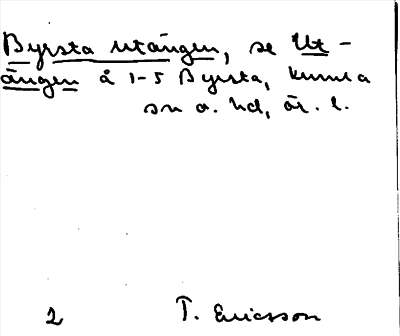 Byrsta utängen, se Ut-
ängen å 1-5 Byrsta, Kumla
sn o. hd, är. l.
2 T. Ericsson